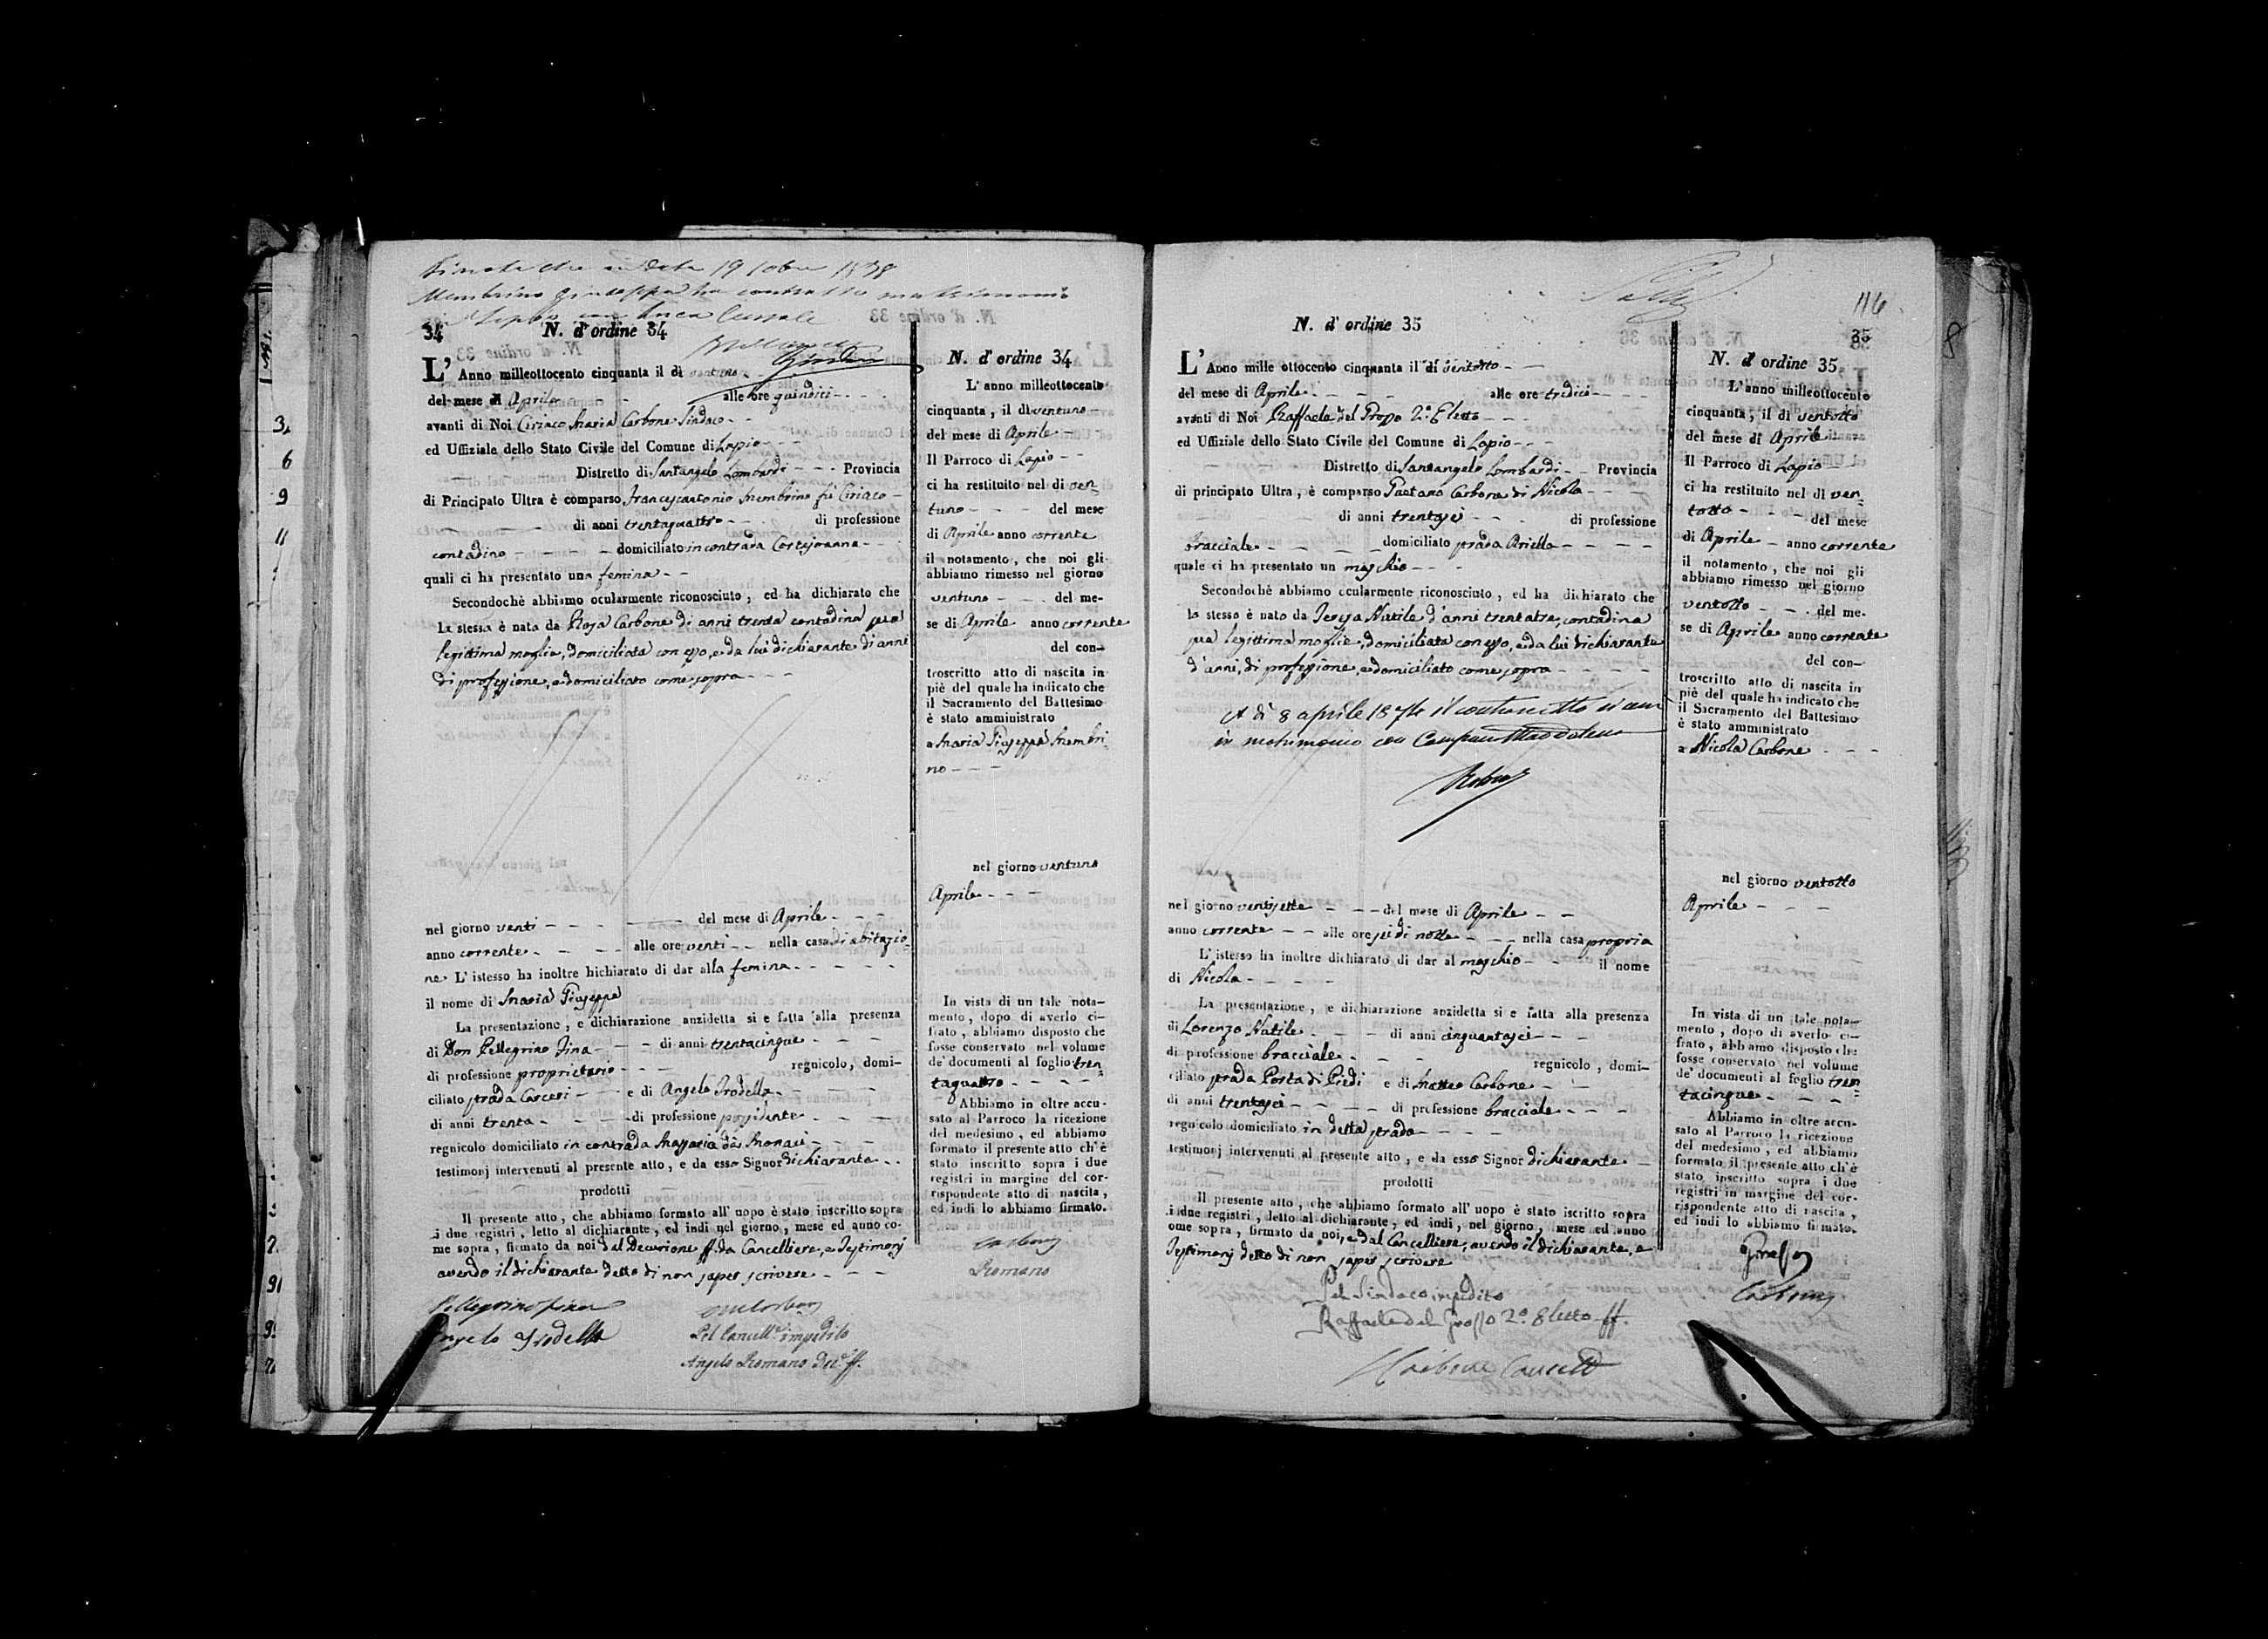 19
Membrino Giuseppa ha contratto matrimonio
34 N. d' ordine 34
L' Anno milleottocento cinquanta il dì ventuno
del mese di Aprile alle ore quindici
avanti di Noi Ciriaco Maria Carbone Sindaco
ed Uffiziale dello Stato Civile del Comune di Lapio
Distretto di Santangelo Lombardi Provincia
di Principato Ultra è comparso Francescantonio Membrino fù Ciriaco
di anni trentaquattro di professione
contadino domiciliato in contrada Cortejoanna
quali ci ha presentato una femina
Secondochè abbiamo ocularmente riconosciuto, ed ha dichiarato che
la stessa è nata da Rosa Carbone di anni trenta contadina sua
legittima moglie, domiciliata con esso, e da lui dichiarante di anni
di professione, e domiciliato come sopra
nel giorno venti del mese di Aprile
anno corrente alle ore venti nella casa di abitazio-
ne L' istesso ha inoltre hichiarato di dar alla femina
il nome di Maria Giuseppa
La presentazione, e dichiarazione anzidetta si e fatta alla presenza
di Don Pellegrino Fina di anni trentacinque
di professione proprietario regnicolo, domi-
ciliato strada Carceri e di Angelo Frodella
di anni trenta di professione possidente
regnicolo domiciliato in contrada Massaria de Monaci
testimonj intervenuti al presente atto, e da esso Signor dichiarante
prodotti
Il presente atto, che abbiamo formato all' uopo è stato inscritto sopra
i due registri, letto al dichiarante, ed indi nel giorno, mese ed anno co-
me sopra, firmato da noi dal Decurione ff. da Cancelliere, e Testimonj
avendo il dichiarante detto di non saper scrivere
Pellegrino Fina
Angelo Frodella
Pel Cancell.e impedito
Angelo Romano Dec.e ff.
N. d' ordine 34
L' anno milleottocento
cinquanta, il dì ventuno
del mese di Aprile
Il Parroco di Lapio
ci ha restituito nel dì ven-
tuno del mese
di Aprile anno corrente
il notamento, che noi gli
abbiamo rimesso nel giorno
ventuno del me-
se di Aprile anno corrente
del con-
troscritto atto di nascita in
piè del quale ha indicato che
il Sacramento del Battesimo
è stato amministrato
a Maria Giuseppa Membri-
no
nel giorno ventuno
Aprile
In vista di un tale nota-
mento, dopo di averlo ci-
frato, abbiamo disposto che
fosse conservato nel volume
de' documenti al foglio tren-
taquattro
Abbiamo in oltre accu-
sato al Parroco la ricezione
del medesimo, ed abbiamo
formato il presente atto ch' è
stato inscritto sopra i due
registri in margine del cor-
rispondente atto di nascita,
ed indi lo abbiamo firmato.
Carbone
Romano
116
35
N. d' ordine 35
L' Anno mille ottocento cinquanta il dì ventotto
del mese di Aprile alle ore tredici
avanti di Noi Raffaele del Grosso 2.o Eletto
ed Uffiziale dello Stato Civile del Comune di Lapio
Distretto di Santangelo Lombardi Provincia
di principato Ultra, è comparso Gaetano Carbone di Nicola
di anni trentasei di professione
bracciale domiciliato strada Ariella
quale ci ha presentato un maschio
Secondochè abbiamo ocularmente riconosciuto, ed ha dichiarato che
lo stesso è nato da Teresa Natile d'anni trentatre, contadina
sua legittima moglie, domiciliata con esso, e da lui dichiarante
d'anni, di professione, e domiciliato come sopra
A dì 8 aprile il controscritto si unì
in matrimonio con Maddalena
nel giorno ventisette del mese di Aprile
anno corrente alle ore sei di notte nella casa propria
L' istesso ha inoltre dichiarato di dar al maschio il nome
di Nicola
La presentazione, e dichiarazione anzidetta si e fatta alla presenza
di Lorenzo Natile di anni cinquantasei
di professione bracciale regnicolo, domi-
ciliato strada Porta di Piedi e di Matteo Carbone
di anni trentasei di professione bracciale
regnicolo domiciliato in detta strada
testimonj intervenuti al presente atto, e da esso Signor dichiarante
prodotti
Il presente atto, che abbiamo formato all' uopo è stato iscritto sopra
i due registri, letto al dichiarante, ed indi, nel giorno, mese ed anno
ome sopra, firmato da noi, e dal Cancelliere, avendo il dichiarante, e
Testimonj detto di non saper scrivere
Pel Sindaco impedito
Raffaele del Grosso 2.o Eletto ff.
Carbone Cancell.
N. d' ordine 35
L' anno milleottocento
cinquanta, il dì ventotto
del mese di Aprile
Il Parroco di Lapio
ci ha restituito nel dì ven-
totto del mese
di Aprile anno corrente
il notamento, che noi gli
abbiamo rimesso nel giorno
ventotto del me-
se di Aprile anno corrente
del con-
troscritto atto di nascita in
piè del quale ha indicato che
il Sacramento del Battesimo
è stato amministrato
a Nicola Carbone
nel giorno ventotto
Aprile
In vista di un tale nota-
mento, dopo di averlo ci-
frato, abbiamo disposto che
fosse conservato nel volume
de' documenti al foglio tren-
tacinque
Abbiamo in oltre accu-
sato al Parroco la ricezione
del medesimo, ed abbiamo
formato il presente atto ch' è
stato inscritto sopra i due
registri in margine del cor-
rispondente atto di nascita,
ed indi lo abbiamo firmato.
Grosso
Carbone